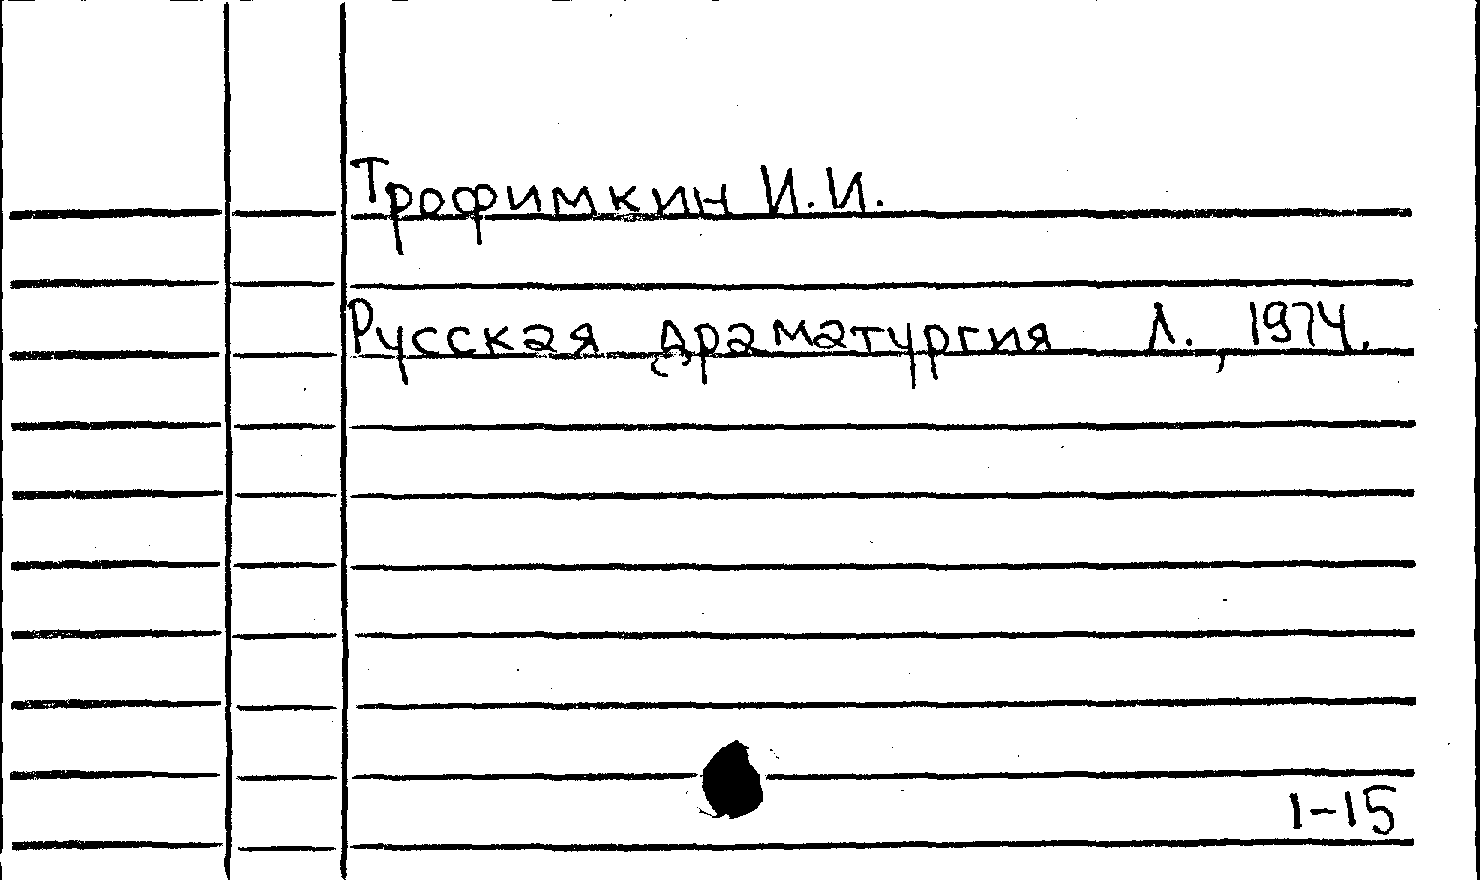 Трофимкин И.И.
Русская драматургия Л., 1974.
1-15